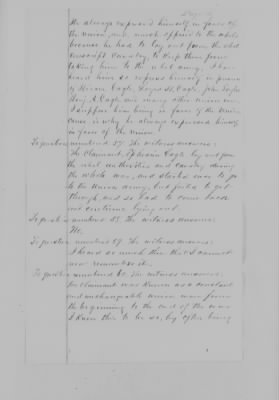 He always expressed himself in favor of
the Union, and much opposed to the rebels
because he had to lay out from the rebel
conscript Cavalry, to keep them from
taking him to the rebel army. I have
heard him so express himself in presence
of Hiram Cagle, Cagle, John Taylor
A. Cagle and many other Union men.
I suppose him being in favor of the Union
cause is why he always expressed himself
in favor of the Union.
To question numbered 57. The witness answers:
The Claimant, Cagle lay out from
the rebel authorities and cavalry during
the whole war, and started over to go
to the Union army, but failed to get
through, and so had to come back
and continue lying out.
To question numbered 58. The witness answers:
No.
To question numbered 59. The witness answers:
I heard so much then that I cannot
now remember it.
To question numbered 60. The witness answers:
The Claimant was known as a constant
and unchangeable Union man from
the beginning to the end of the war
I know this to be so, by often being